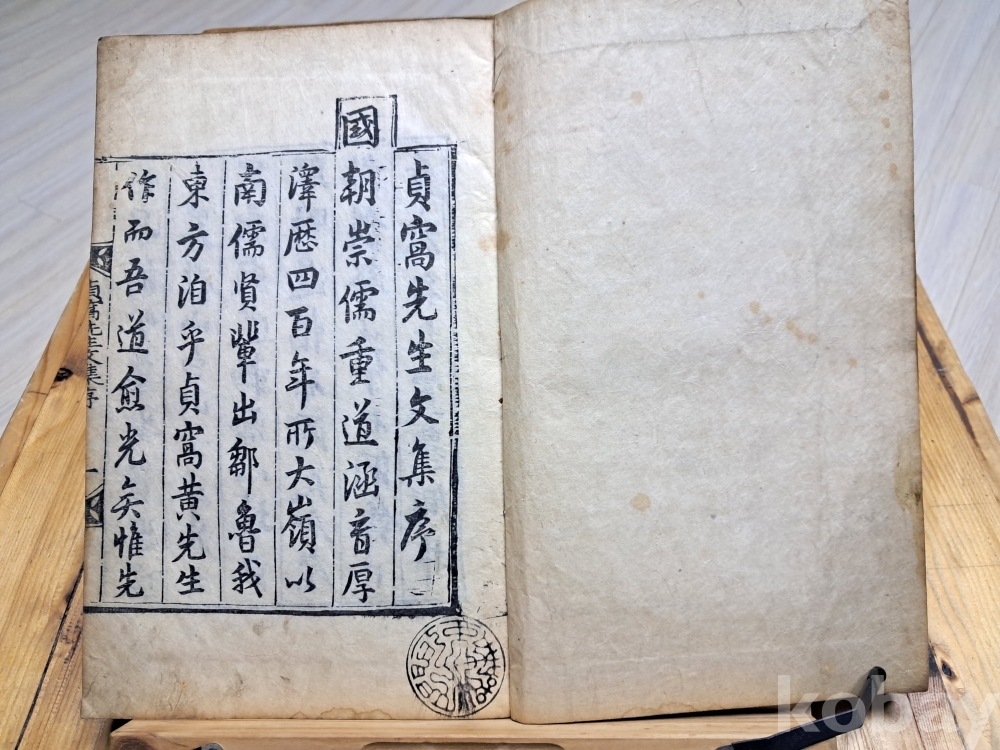 貞窩先生文集序
國朝崇儒重道涵育厚
澤歷四百年所大嶺以
南儒賢輩出鄒魯我
東方洎乎貞窩黃先生
作而吾道愈光矣惟先
貞窩先生文集序 一
kobay